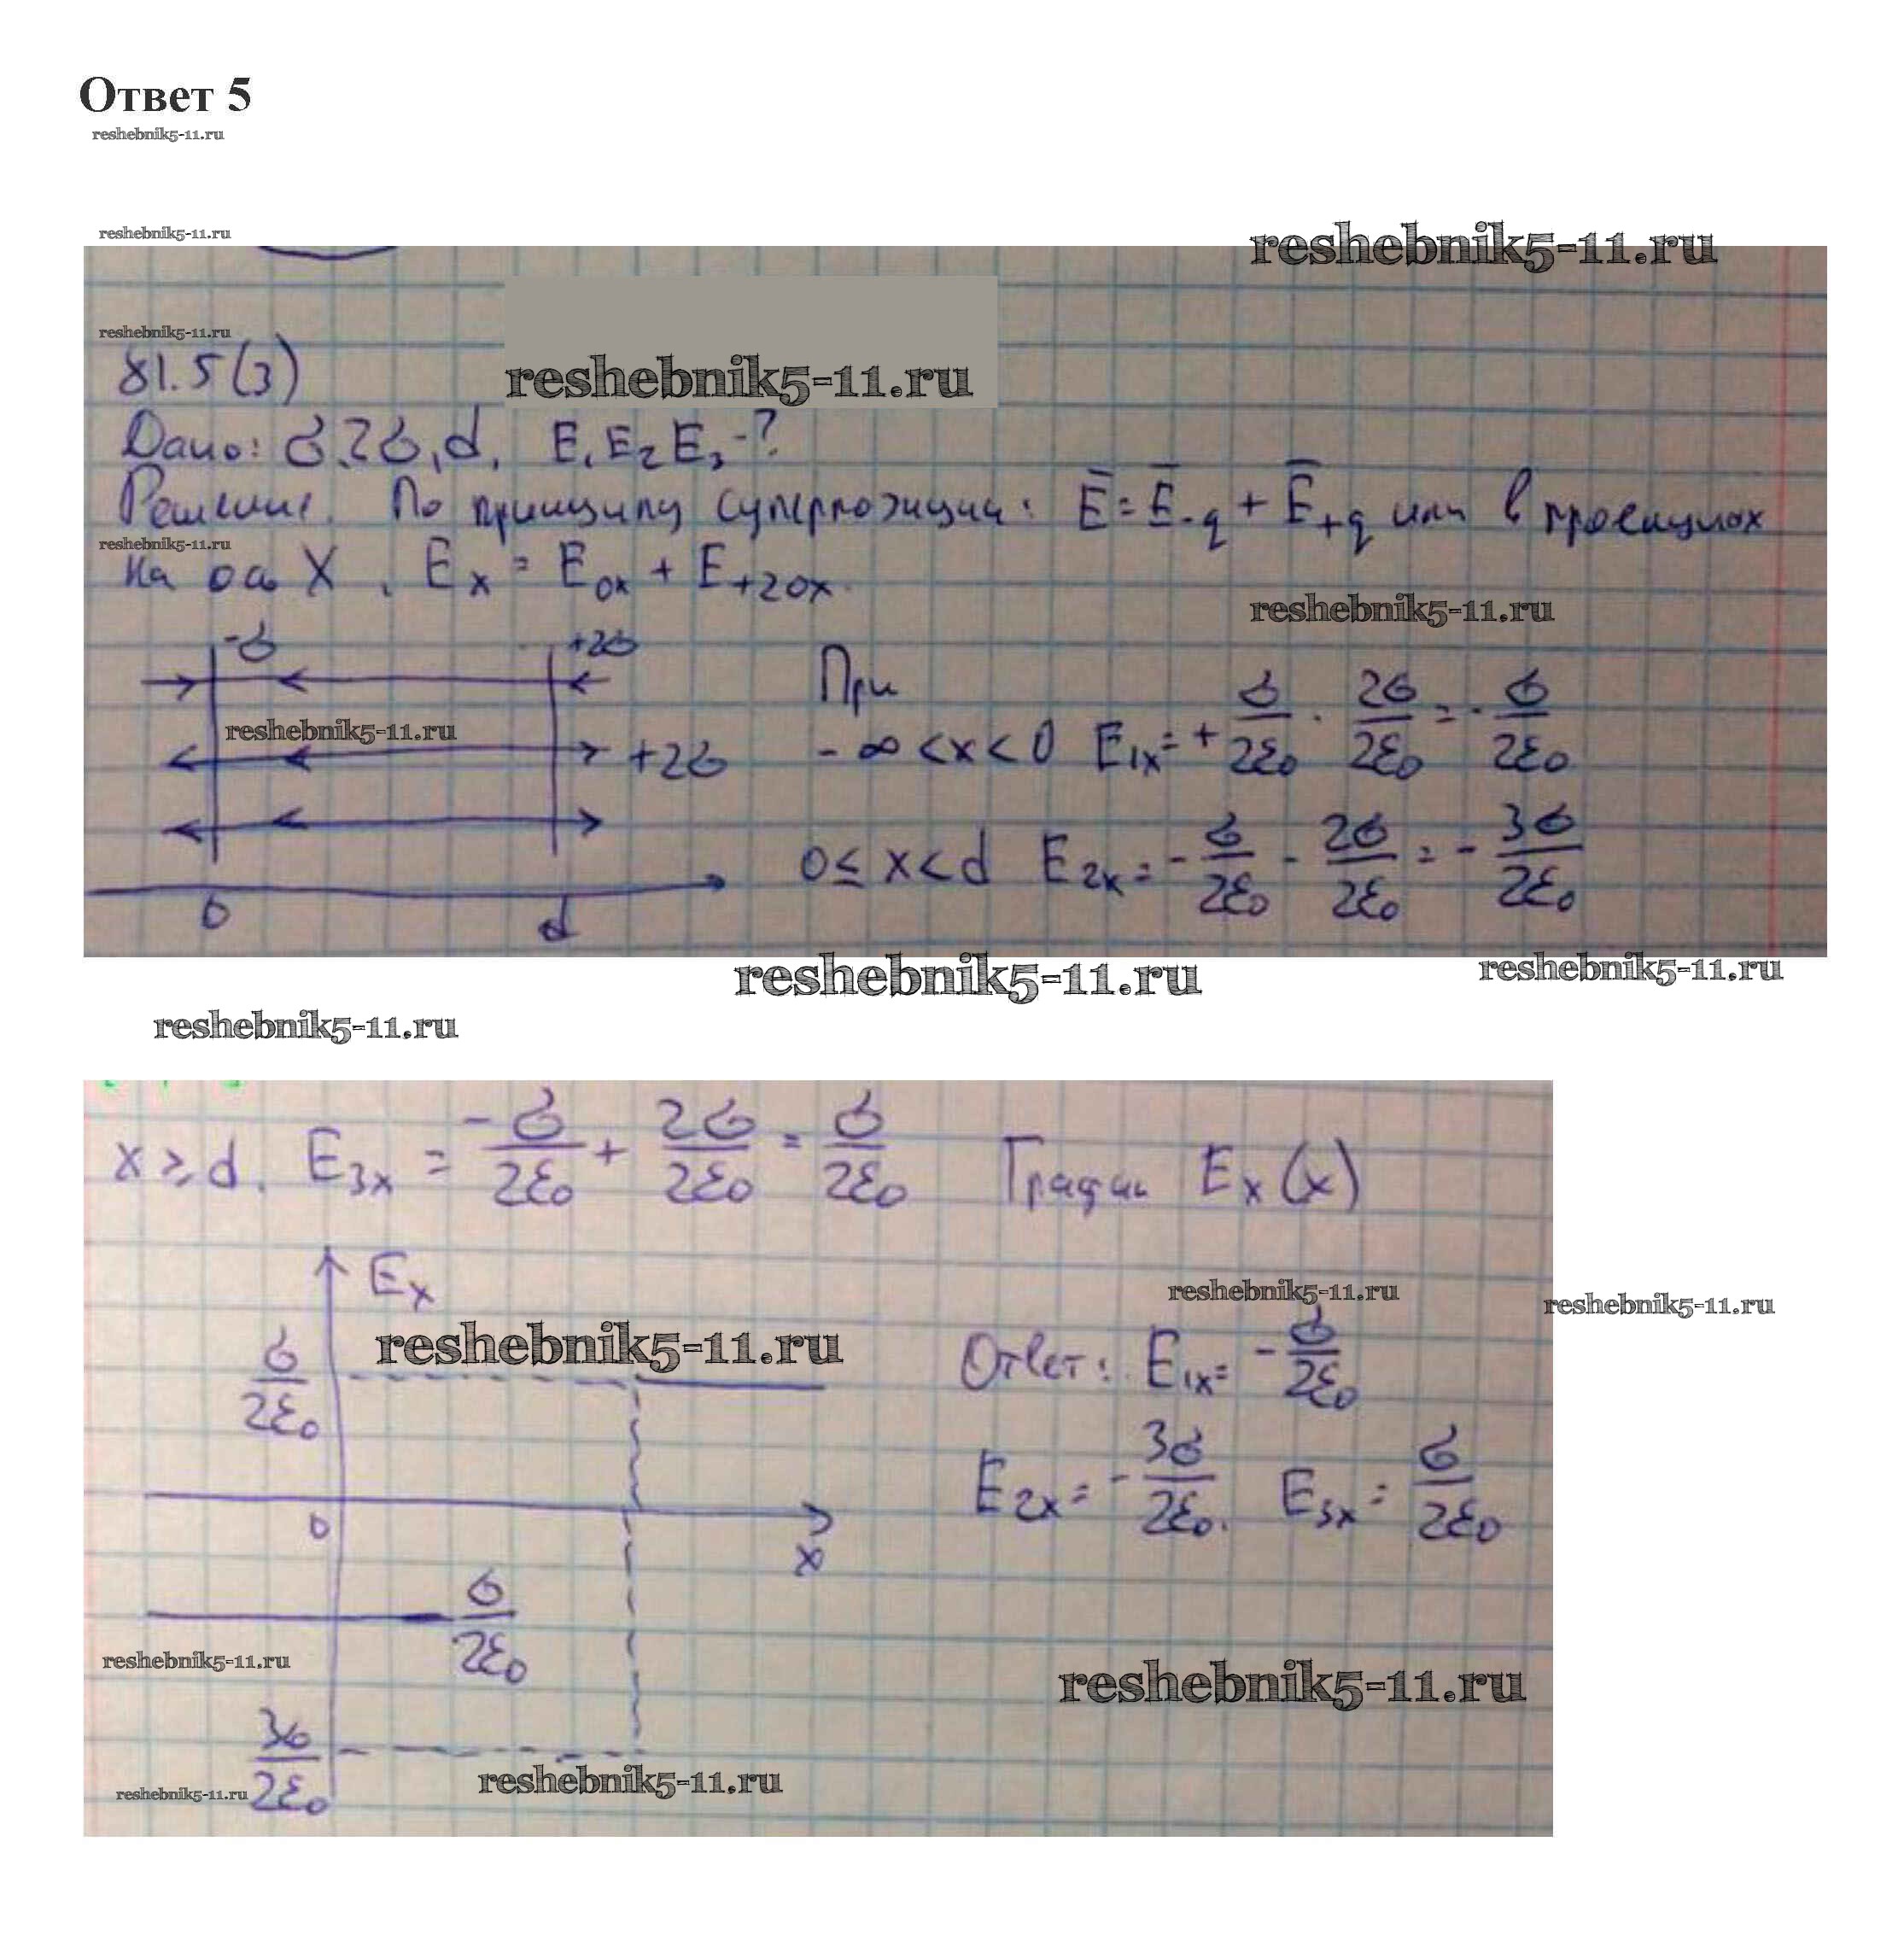 Ответ 5
reshebnik5-11.ru
reshebnik5-11.ru
reshebnik5-11.ru
reshebnik5-11.ru
81.5(3)
reshebnik5-11.ru
Дано: σ, 2σ, d, E₁ E₂ E₃ -?
Решение. По принципу суперпозиции: E̅ = E̅₋q + E̅₊q или в проекциях
reshebnik5-11.ru
на ось X, Eₓ = E₀ₓ + E₊₂₀ₓ.
reshebnik5-11.ru
-σ +2σ
При
reshebnik5-11.ru
+2σ
-∞ < x < 0 E₁ₓ = + σ/2ε₀ · 2σ/2ε₀ = - σ/2ε₀
0 ≤ x < d E₂ₓ = - σ/2ε₀ - 2σ/2ε₀ = - 3σ/2ε₀
0 d
reshebnik5-11.ru
reshebnik5-11.ru
reshebnik5-11.ru
x ≥ d. E₃ₓ = -σ/2ε₀ + 2σ/2ε₀ = σ/2ε₀ Eₓ(x)
Eₓ
reshebnik5-11.ru
reshebnik5-11.ru
reshebnik5-11.ru
σ/2ε₀
Ответ: E₁ₓ = - σ/2ε₀
E₂ₓ = - 3σ/2ε₀. E₃ₓ = σ/2ε₀
0
x
σ/2ε₀
reshebnik5-11.ru
reshebnik5-11.ru
3σ/2ε₀
reshebnik5-11.ru
reshebnik5-11.ru